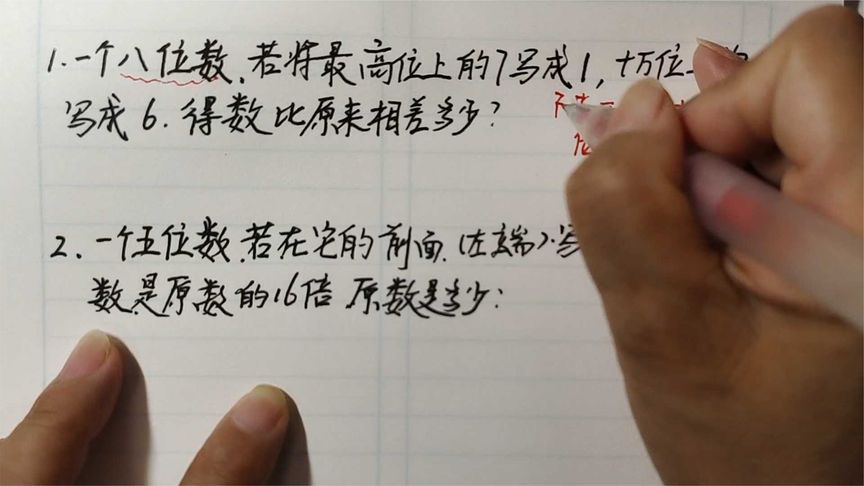 1.一个八位数.若将最高位上的7写成1,十万位
写成6.得数比原来相差多少?
2.一个五位数.若在它的前面.(左端)写
数是原数的16倍 原数是多少: